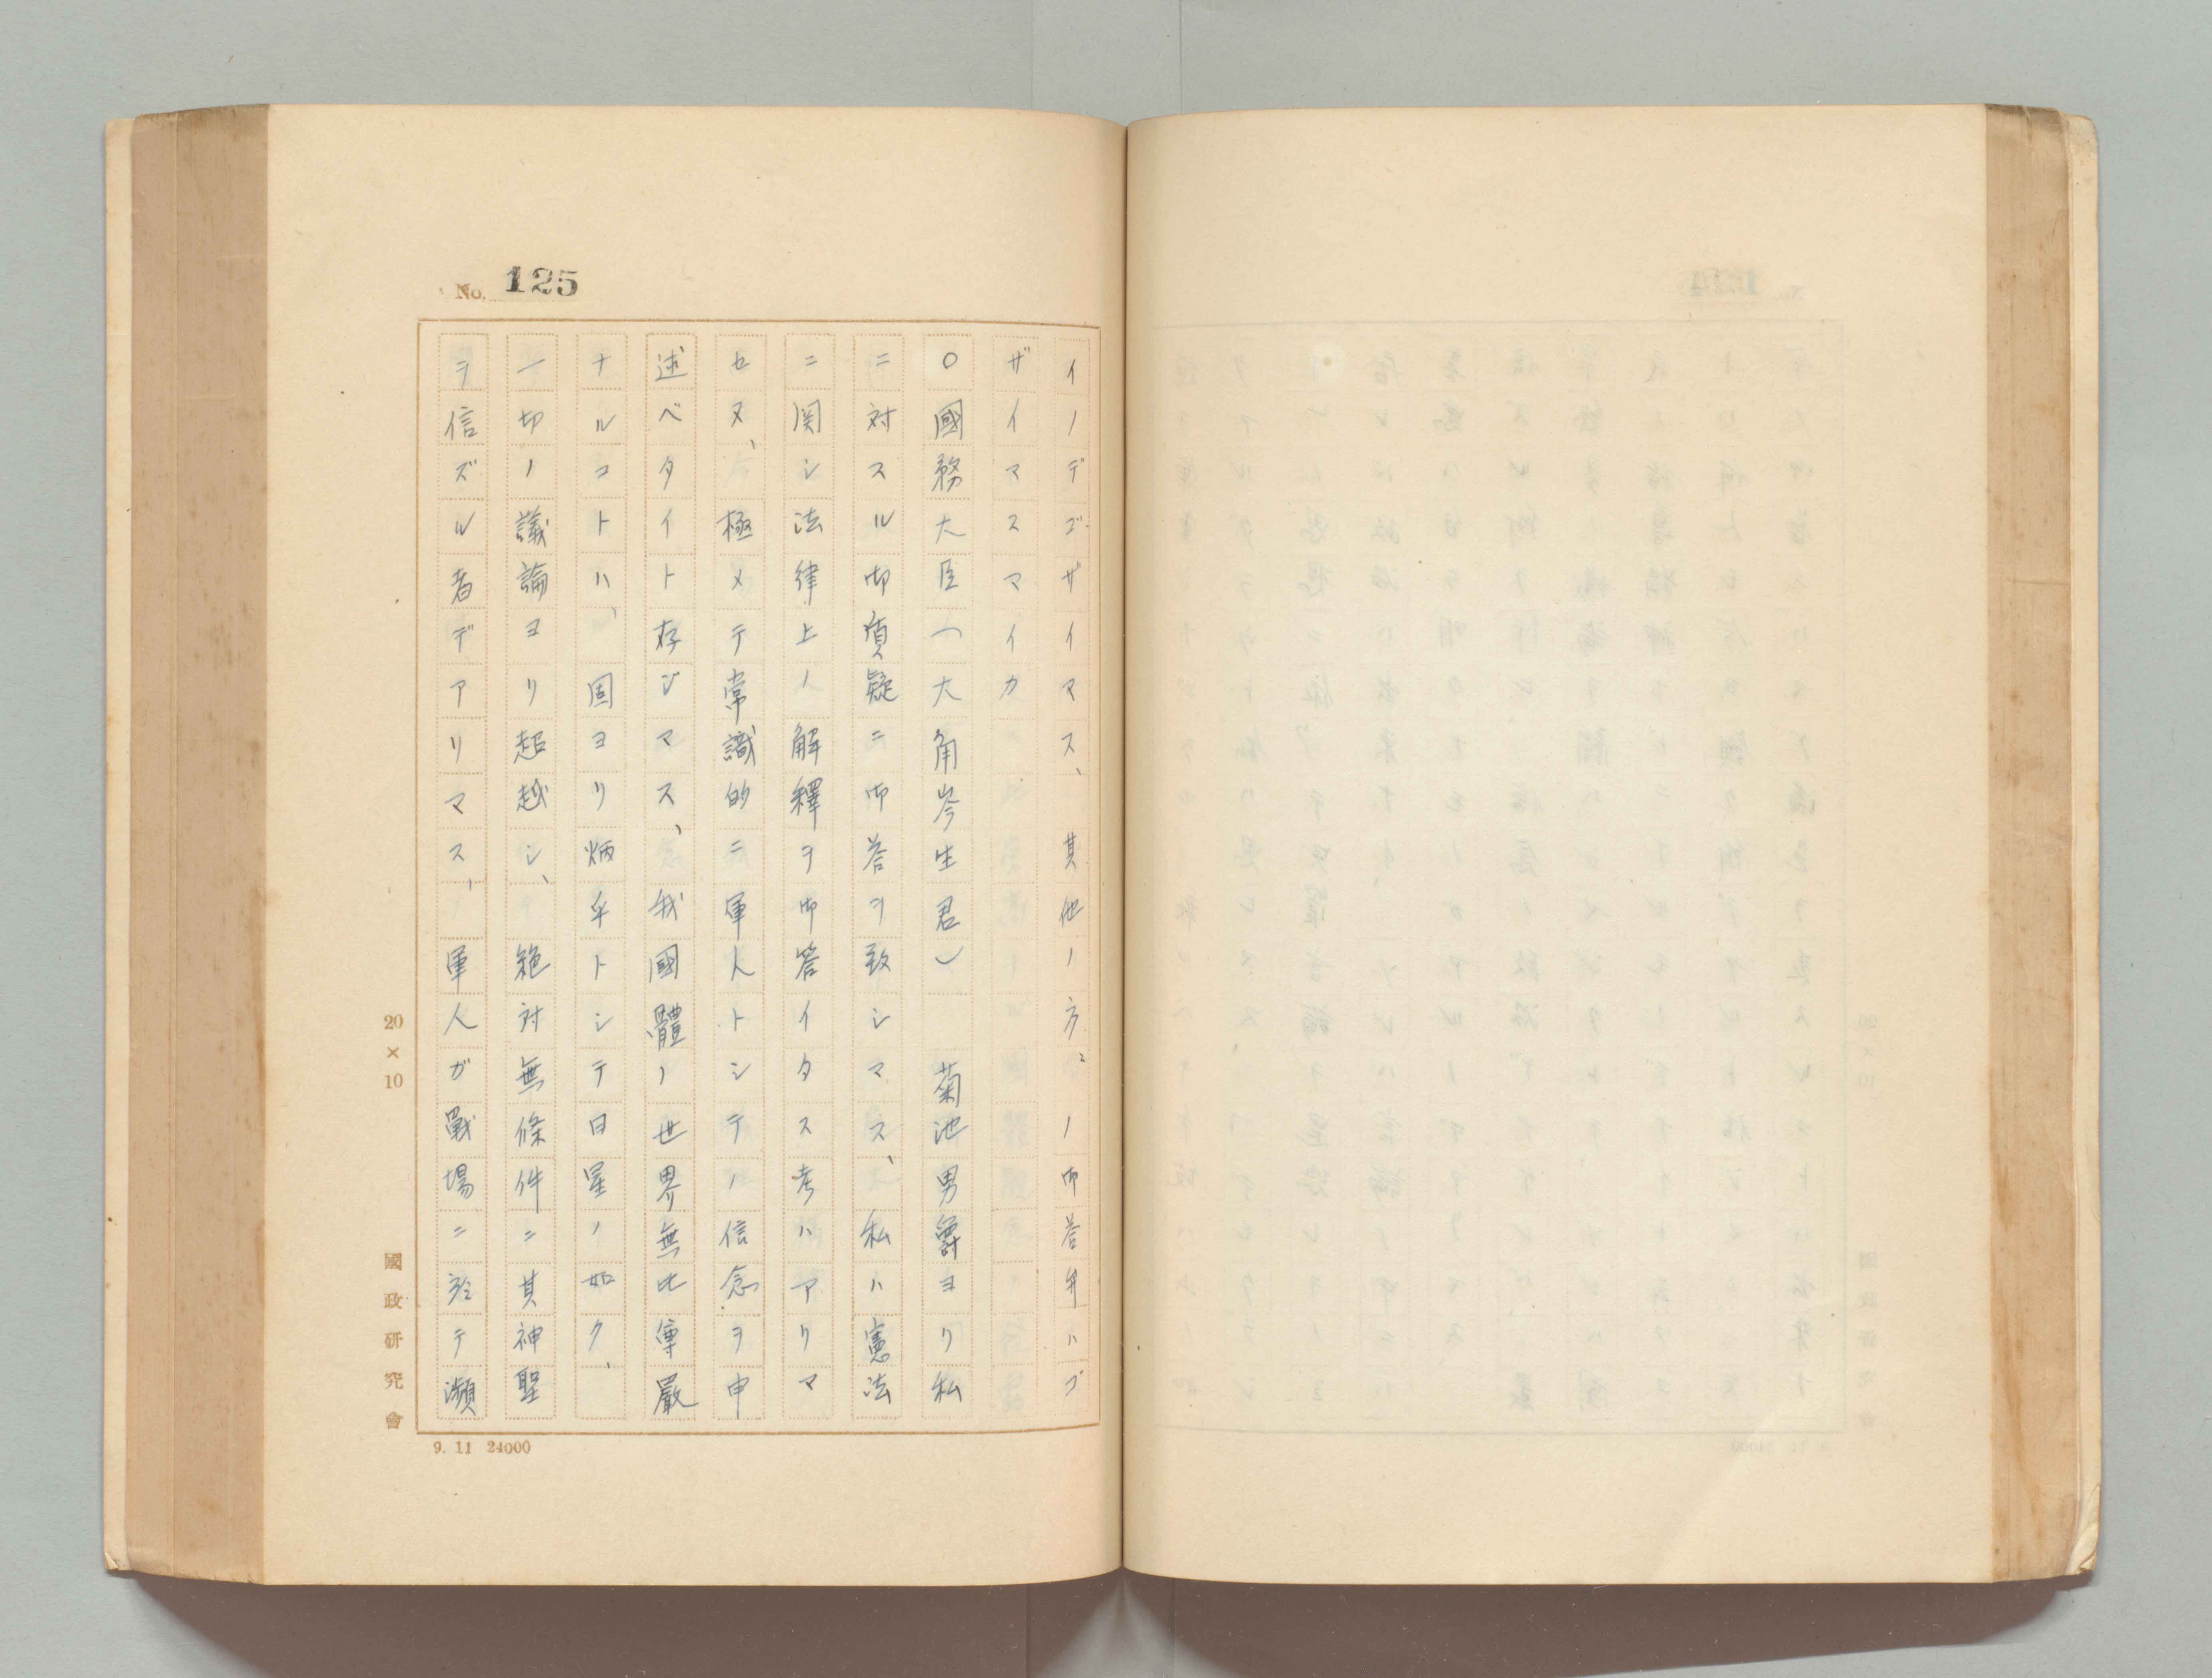 No. 125
イノデゴザイマス、其他ノ方々ノ御答弁ハゴ
ザイマスマイカ
○國務大臣(大角岑生君) 菊池男爵ヨリ私
ニ対スル御質疑ニ御答ヲ致シマス、私ハ憲法
ニ関シ法律上ノ解釋ヲ御答イタス考ハアリマ
セヌ、極メテ常識的ニ軍人トシテノ信念ヲ申
述ベタイト存ジマス、我國體ノ世界無比尊嚴
ナルコトハ、固ヨリ炳乎トシテ日星ノ如ク、
一切ノ議論ヨリ超越シ、絶対無條件ニ其神聖
ヲ信ズル者デアリマス、軍人ガ戰場ニ於テ瀕
20×10
國政研究會
9. 11 24000